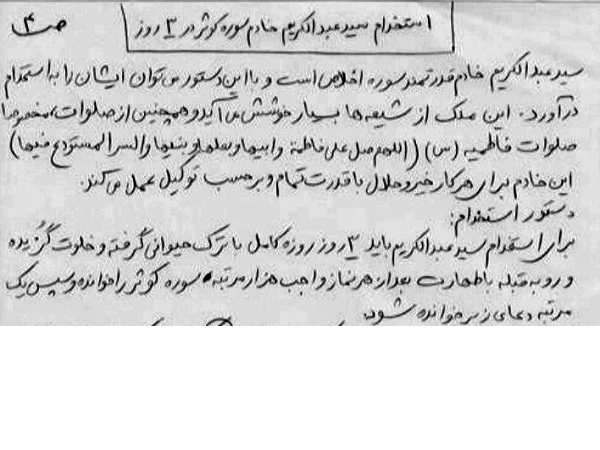 ص ۴
استخدام سید عبدالکریم خادم سوره کوثر در ۳ روز
سید عبدالکریم خادم قدرتمند سوره اخلاص است و با این دستور می توان ایشان را به استخدام
درآورد. این ملک از شیعه ها بسیار خوشش می آید و همچنین از صلوات، مخصوصا
صلوات فاطمیه (س) (اللهم صل علی فاطمة و ابیها و بعلها و بنیها والسر المستودع فیها)
این خادم برای هر کار خیر و حلال با قدرت تمام و بر حسب توکیل عمل می کند.
دستور استخدام:
برای استخدام سید عبدالکریم باید ۳ روز روزه کامل با ترک حیوانی گرفته و خلوت گزیده
و رو به قبله با طهارت بعد از هر نماز واجب هزار مرتبه سوره کوثر را خوانده و سپس یک
مرتبه دعای زیر خوانده شود.